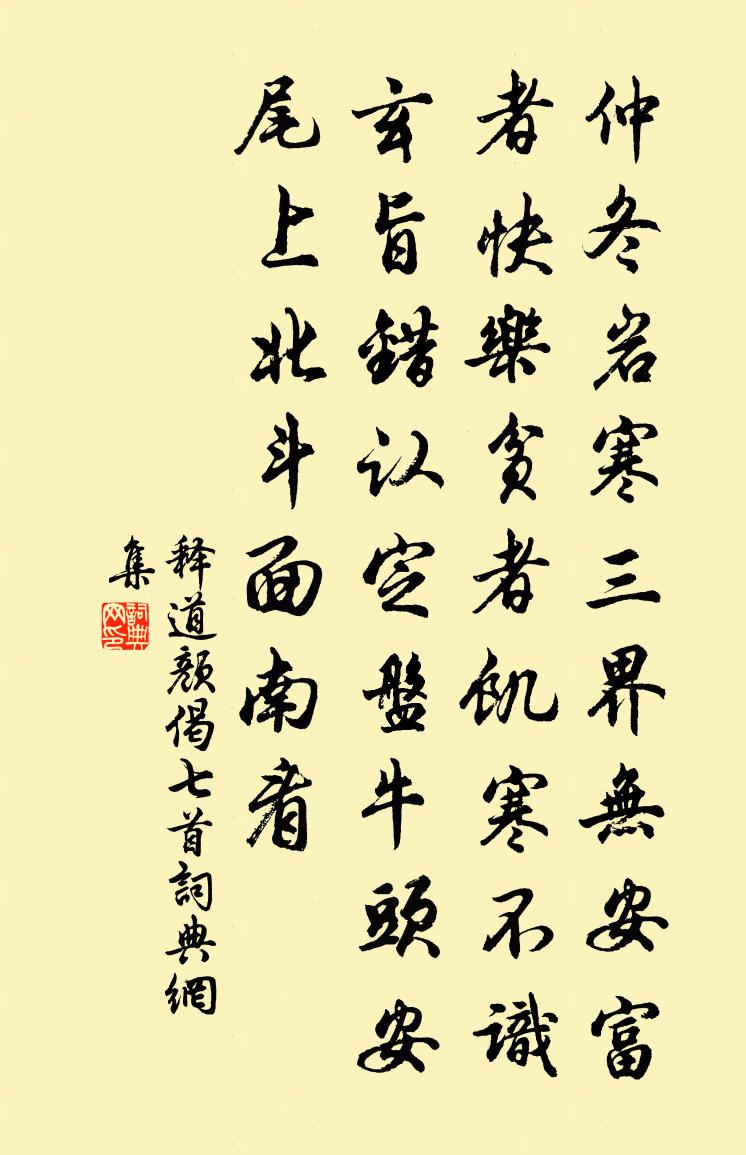 仲冬岩寒三界無安富
者快樂貧者飢寒不識
玄旨錯认定盤牛頭安
尾上北斗面南看
释道颜偈七首詞典網
集
詞典
网印